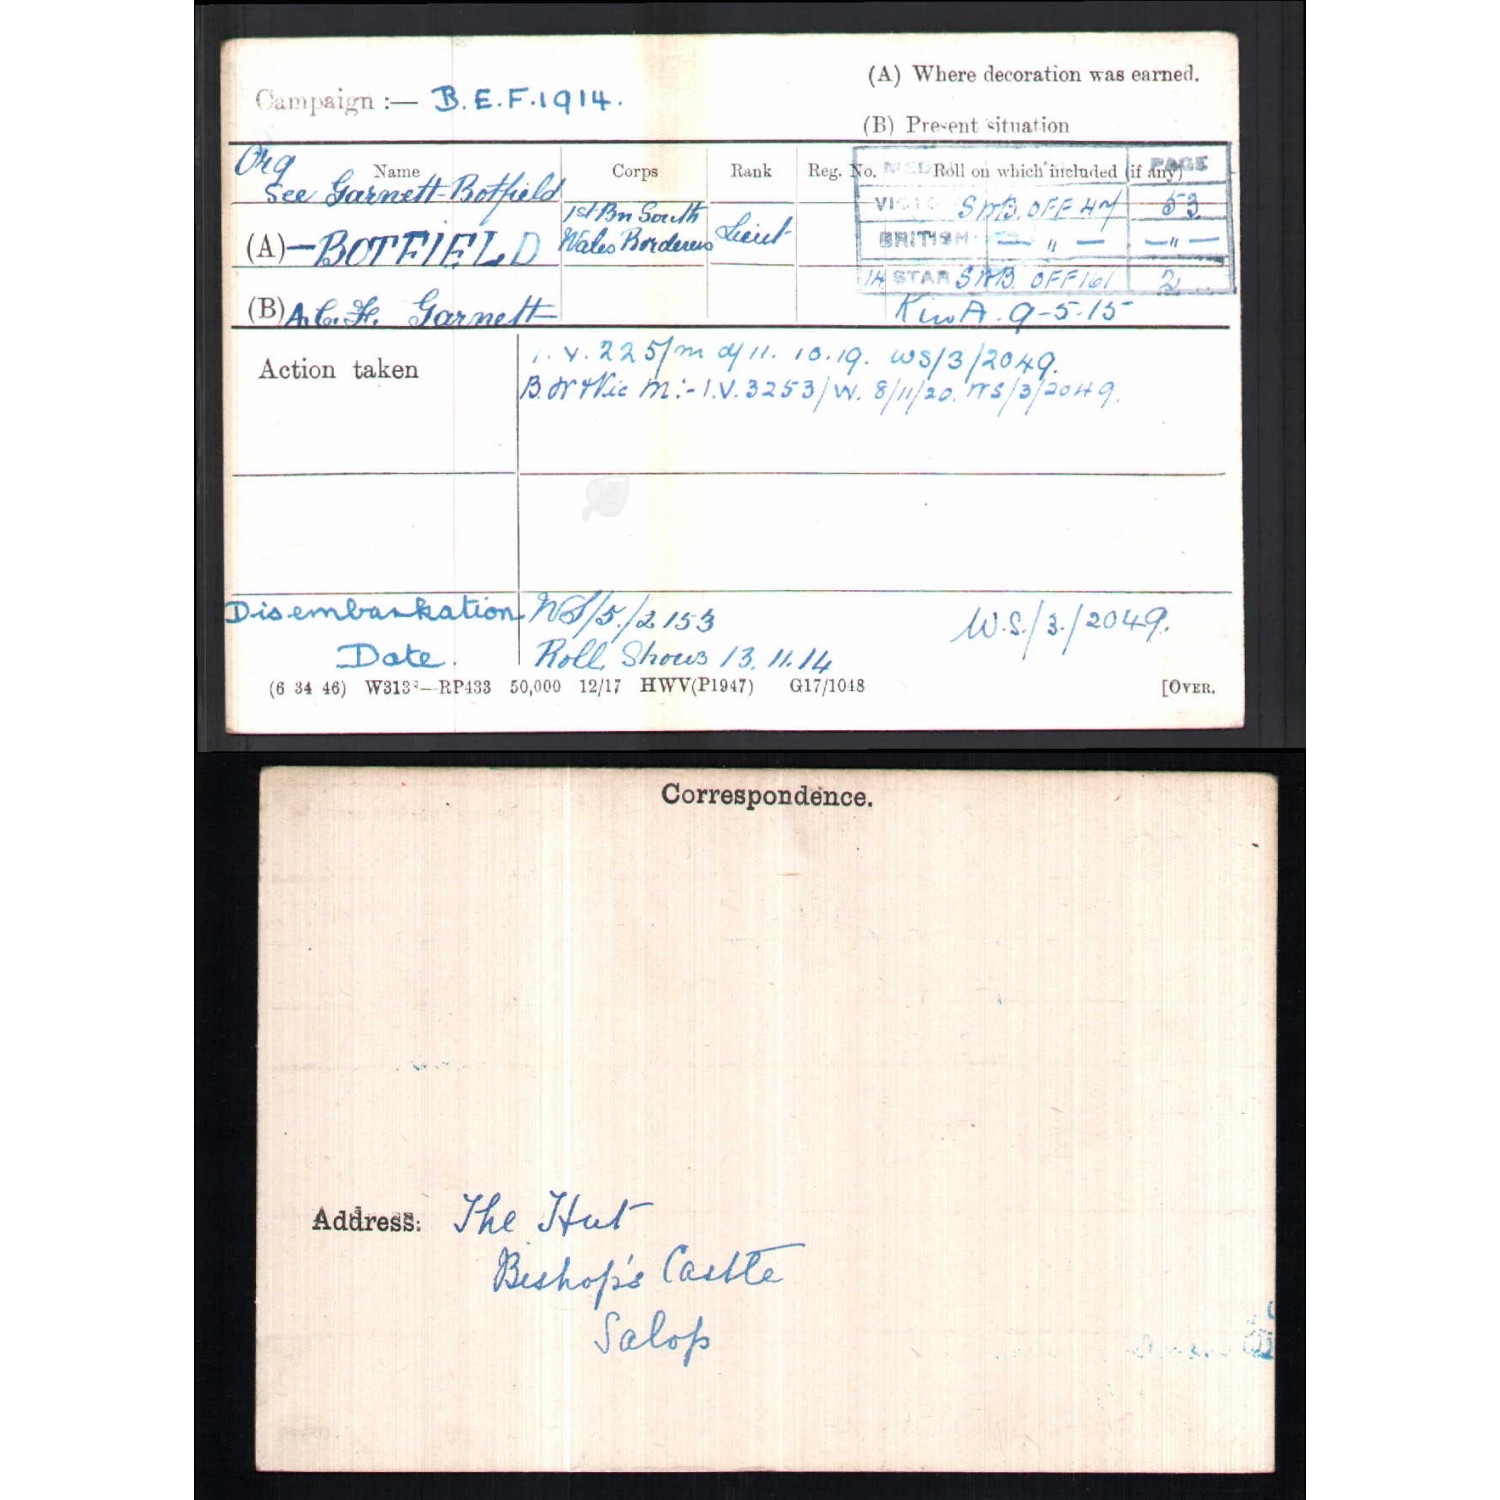 (A) Where decoration was earned.
Campaign :— B.E.F. 1914.
(B) Present situation
Org
Name Corps Rank Reg. No. MED Roll on which included (if any) PAGE
See Garnett-Botfield
VICTO S.W.B. OFF 47 53
(A) — BOTFIELD 1st Bn South Wales Borderers Lieut
BRITISH — " — — " —
14 STAR SWB. OFF 161 2
(B) A.C.F. Garnett K in A. 9-5-15
Action taken I.V. 225/m d/ 11. 10. 19. WS/3/2049.
B.W & Vic M:- I.V. 3253/W. 8/11/20. WS/3/2049.
Disembarkation WS/5./2153 W.S./3./2049.
Date. Roll Shows 13. 11. 14
RP433 50,000 12/17 HWV(P1947) G17/1048 [OVER.
Correspondence.
Address: The Hut
Bishop's Castle
Salop